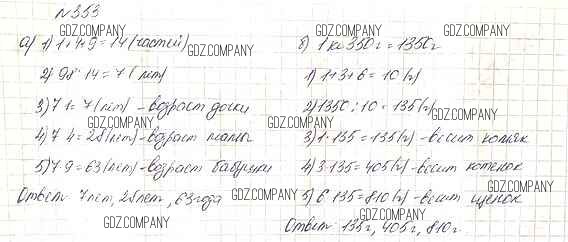 №353
а) 1) 1+4+9=14 (частей)
2) 98:14=7 (лет)
3) 7·1=7 (лет) - возраст дочки
4) 7·4=28 (лет) - возраст мамы
5) 7·9=63 (лет) - возраст бабушки
Ответ 7 лет, 28 лет, 63 года
б) 1 кг 350 г = 1350 г
1) 1+3+6=10 (г)
2) 1350:10=135 (г)
3) 1·135=135 (г) - весит
4) 3·135=405 (г) - весит котенок
5) 6·135=810 (г) - весит щенок
Ответ 135 г, 405 г, 810 г.
GDZ.COMPANY
GDZ.COMPANY
GDZ.COMPANY
GDZ.COMPANY
GDZ.COMPANY
GDZ.COMPANY
GDZ.COMPANY
GDZ.COMPANY
GDZ.COMPANY
GDZ.COMPANY
GDZ.COMPANY
GDZ.COMPANY
GDZ.COMPANY